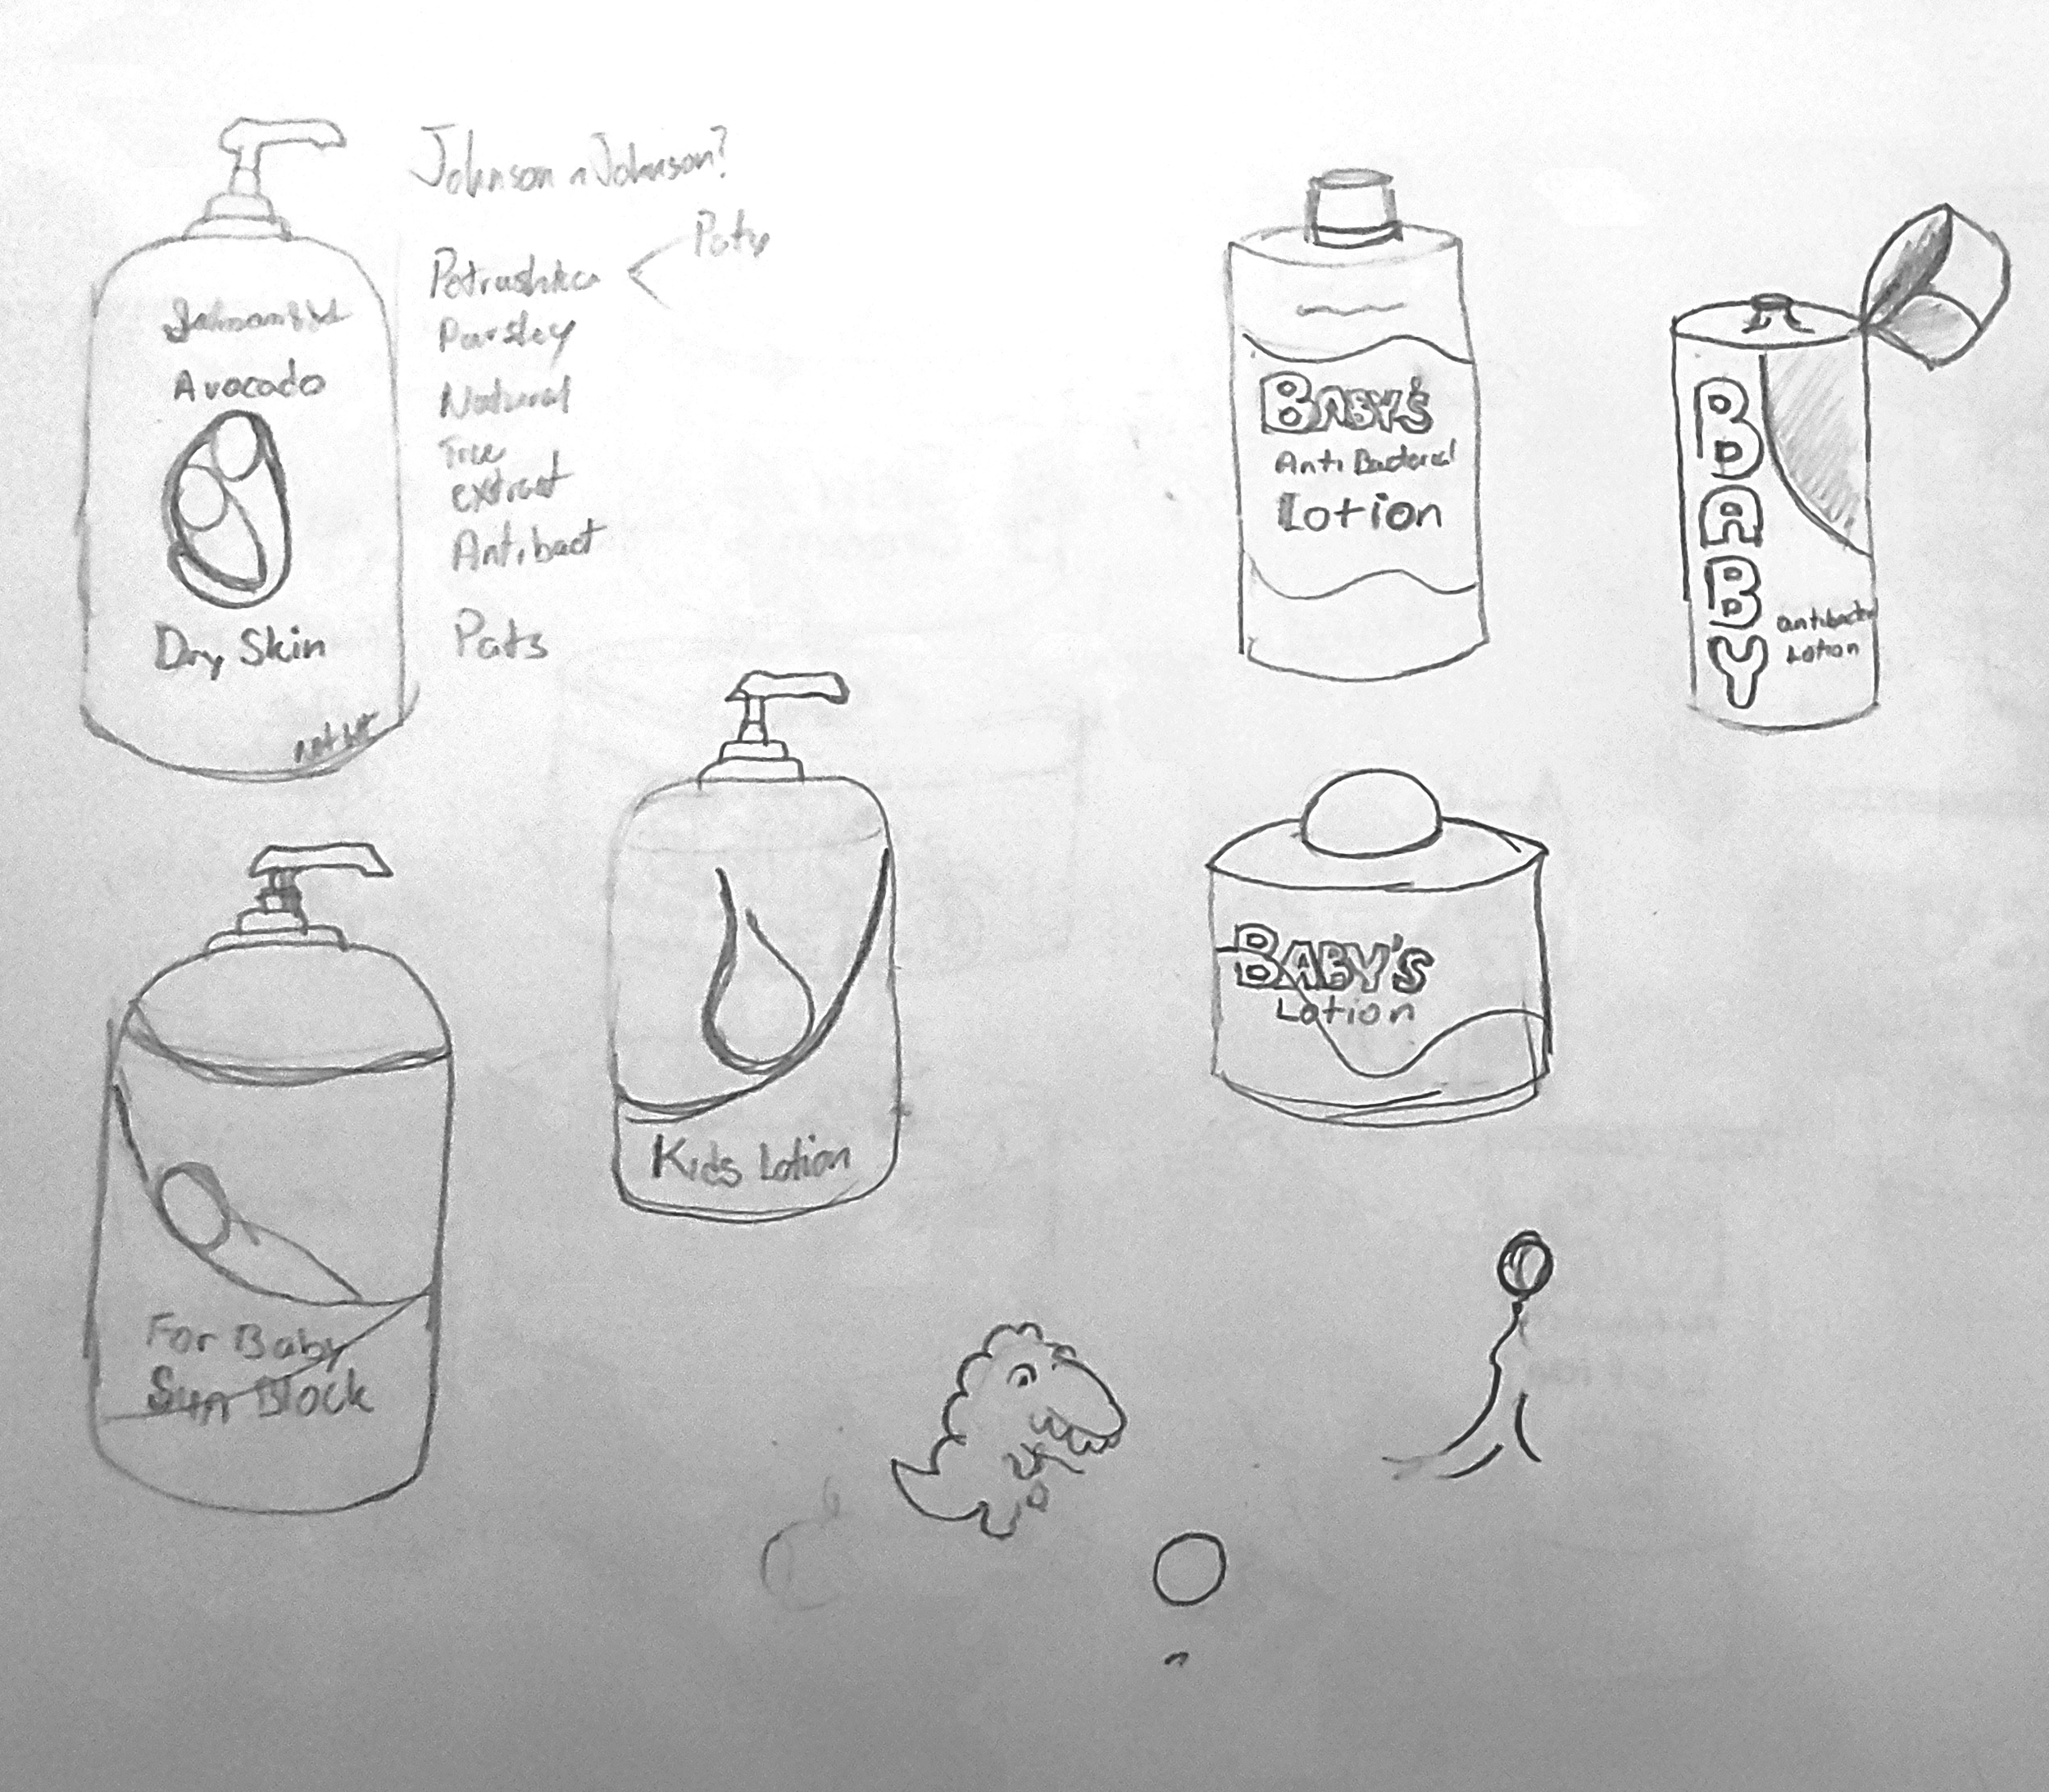 Johnson n Johnson?
Paty
Petrushka
Parsley
Natural
Tree
extract
Antibact
Pats
Avocado
Dry Skin
Kids Lotion
For Baby
Sun Block
BABY'S
Anti Bacterial
Lotion
BABY
antibacte
Lotion
BABY'S
Lotion